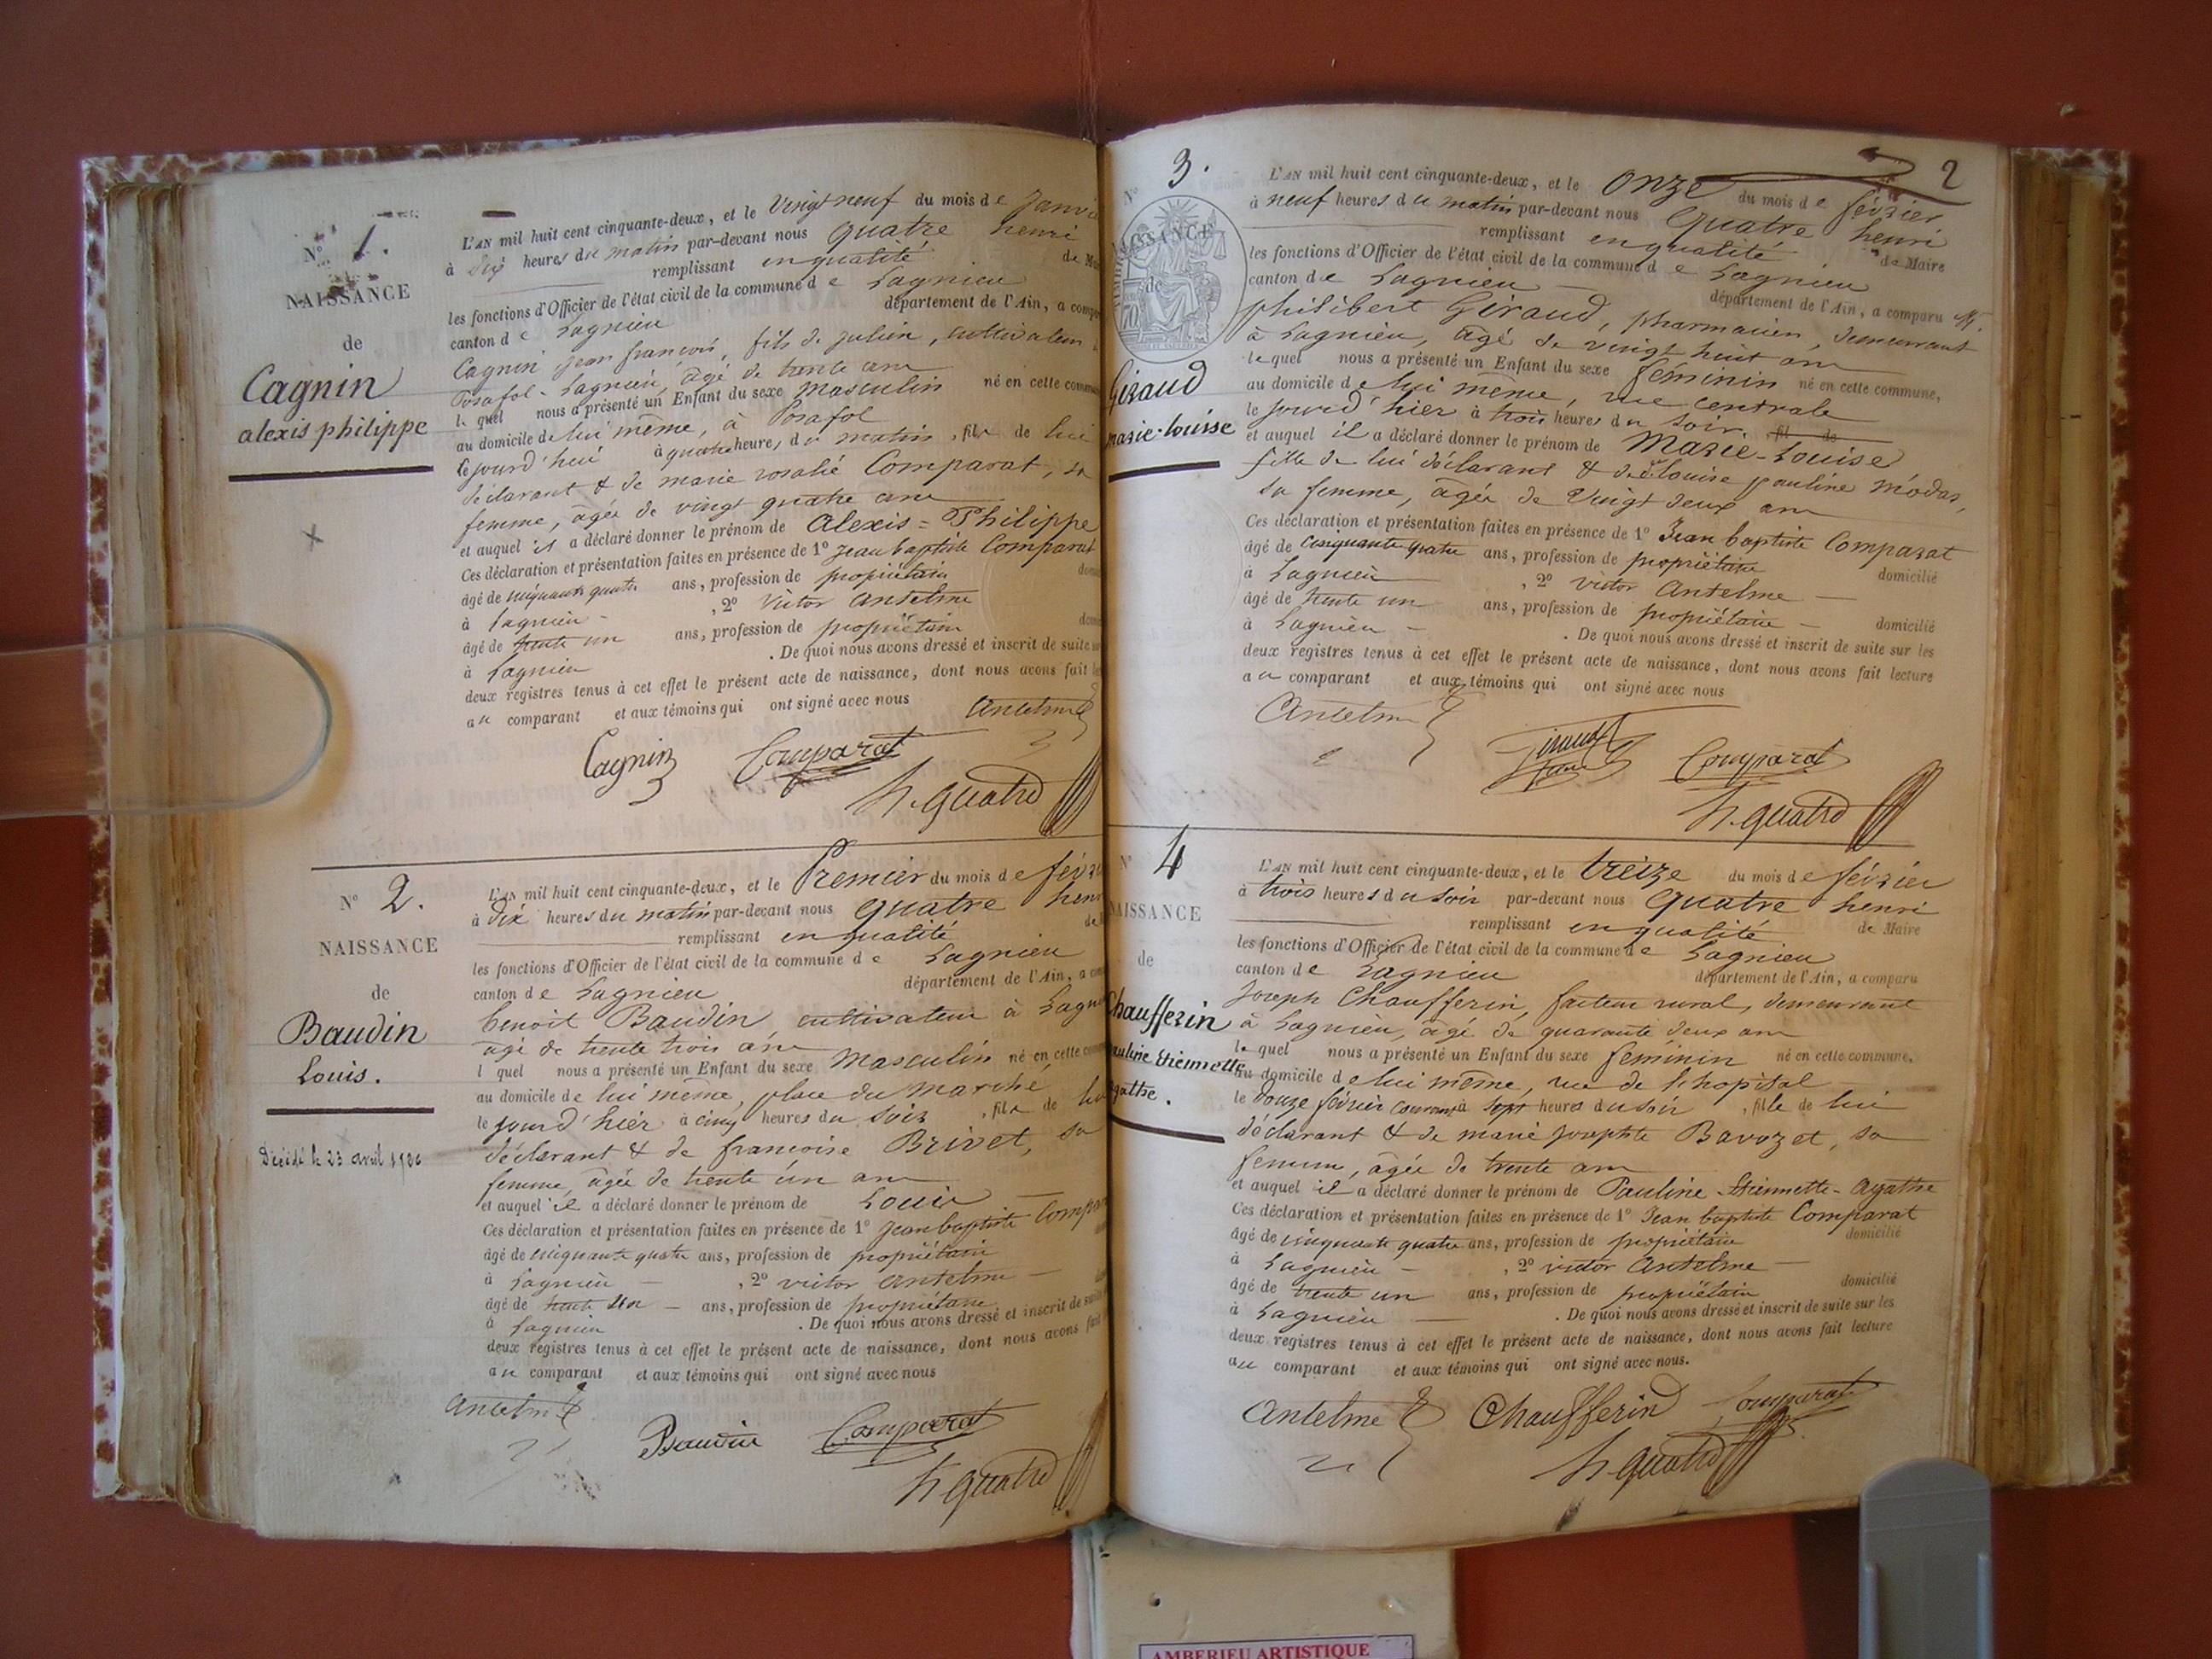 N° 1.
NAISSANCE
de
Cagnin
alexis philippe
L'AN mil huit cent cinquante-deux, et le Vingt neuf du mois de Janvi
à dix heures du matin par-devant nous Quatre henri
remplissant en qualité de M
les fonctions d'Officier de l'état civil de la commune de Lagnieu
canton de Lagnieu département de l'Ain, a comp
Cagnin jean françois, fils de julien, cultivateur à
Posafol - Lagnieu, âgé de trente ans
lequel nous a présenté un Enfant du sexe Masculin né en cette commune
au domicile de lui même, à Posafol
le jourd'hui à quatre heures du matin, fils de lui
déclarant & de marie rosalie Comparat, sa
femme, âgée de vingt quatre ans
et auquel il a déclaré donner le prénom de Alexis = Philippe
Ces déclaration et présentation faites en présence de 1° Jean baptiste Comparat
âgé de cinquante quatre ans, profession de propriétaire domi
à Lagnieu - , 2° Victor Anselme
âgé de trente un ans, profession de propriétaire domi
à Lagnieu . De quoi nous avons dressé et inscrit de suite sur
deux registres tenus à cet effet le présent acte de naissance, dont nous avons fait le
au comparant et aux témoins qui ont signé avec nous
Anselme
Cagnin Comparat
h. Quatre
N° 2.
NAISSANCE
de
Baudin
Louis.
Décédé le 23 avril
L'AN mil huit cent cinquante-deux, et le Premier du mois de févri
à dix heures du matin par-devant nous Quatre henri
remplissant en qualité de
les fonctions d'Officier de l'état civil de la commune de Lagnieu
canton de Lagnieu département de l'Ain, a com
benoit Baudin, cultivateur à Lagn
agé de trente trois ans
lquel nous a présenté un Enfant du sexe Masculin né en cette comm
au domicile de lui même, place du marché,
le jourd'hier à cinq heures du soir, fils de lui
déclarant & de françoise Brivet, sa
femme, âgée de trente un ans
et auquel il a déclaré donner le prénom de Louis
Ces déclaration et présentation faites en présence de 1° jean baptiste Compar
âgé de cinquante quatre ans, profession de propriétaire
à Lagnieu - , 2° victor anselme -
âgé de trente un - ans, profession de propriétaire
à Lagnieu . De quoi nous avons dressé et inscrit de suite
deux registres tenus à cet effet le présent acte de naissance, dont nous avons fait
au comparant et aux témoins qui ont signé avec nous
Anselme
Baudin Comparat
h Quatre
2
N° 3.
NAISSANCE
de
Giraud
marie-louise
L'AN mil huit cent cinquante-deux, et le Onze du mois de février
à neuf heures du matin par-devant nous Quatre henri
remplissant en qualité de Maire
les fonctions d'Officier de l'état civil de la commune de Lagnieu
canton de Lagnieu - département de l'Ain, a comparu M.
philibert Giraud, pharmacien, demeurant
à Lagnieu, âgé de vingt huit ans
lequel nous a présenté un Enfant du sexe féminin né en cette commune,
au domicile de lui même, rue centrale
le jourd'hier à trois heures du soir, fil de
et auquel il a déclaré donner le prénom de Marie-Louise
fille de lui déclarant & de louise pauline
sa femme, âgée de Vingt deux ans
Ces déclaration et présentation faites en présence de 1° Jean baptiste Comparat
âgé de cinquante quatre ans, profession de propriétaire domicilié
à Lagnieu , 2° victor Anselme -
âgé de trente un ans, profession de propriétaire - domicilié
à Lagnieu - . De quoi nous avons dressé et inscrit de suite sur les
deux registres tenus à cet effet le présent acte de naissance, dont nous avons fait lecture
au comparant et aux témoins qui ont signé avec nous
Anselme
Giraud Comparat
h. Quatre
N° 4
NAISSANCE
de
Chaufferin
Pauline Etiennette
Agathe.
L'AN mil huit cent cinquante-deux, et le treize du mois de février
à trois heures du soir par-devant nous Quatre henri
remplissant en qualité de Maire
les fonctions d'Officier de l'état civil de la commune de Lagnieu
canton de Lagnieu département de l'Ain, a comparu
Joseph Chaufferin, facteur rural, demeurant
à Lagnieu, âgé de quarante deux ans
lequel nous a présenté un Enfant du sexe féminin né en cette commune,
au domicile de lui même, rue de l'hopital
le douze février courant à sept heures du soir, fille de lui
déclarant & de marie josephte Bavozet, sa
femme, âgée de trente ans
et auquel il a déclaré donner le prénom de Pauline - Etiennette - Agathe
Ces déclaration et présentation faites en présence de 1° Jean baptiste Comparat
âgé de cinquante quatre ans, profession de propriétaire domicilié
à Lagnieu - , 2° victor Anselme -
âgé de trente un ans, profession de propriétaire domicilié
à Lagnieu - . De quoi nous avons dressé et inscrit de suite sur les
deux registres tenus à cet effet le présent acte de naissance, dont nous avons fait lecture
au comparant et aux témoins qui ont signé avec nous.
Anselme Chaufferin Comparat
h. Quatre
AMBERIEU ARTISTIQUE